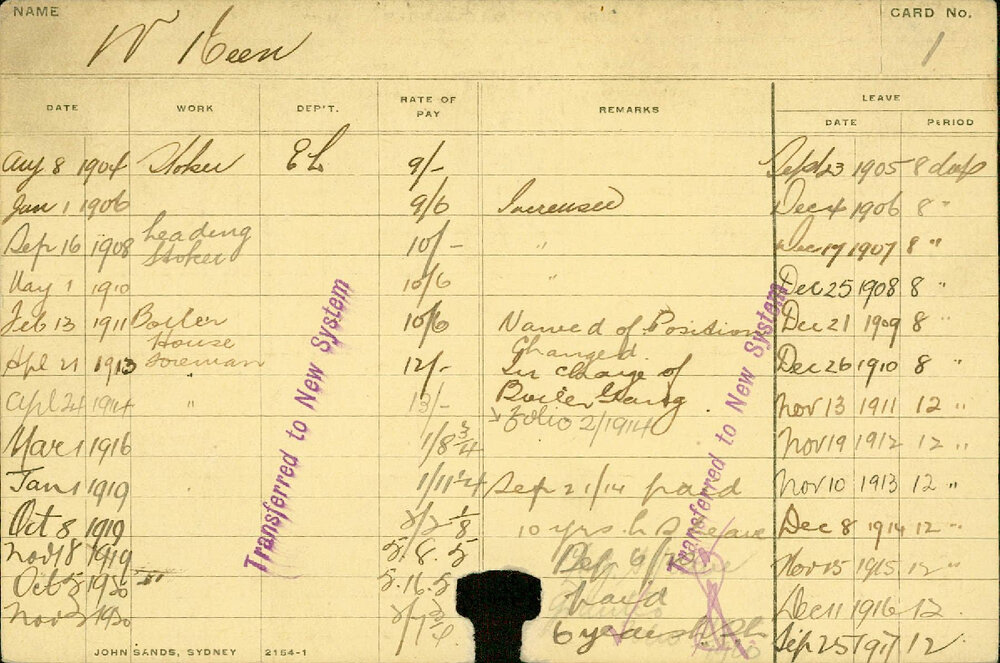 NAME CARD No.
W Keen 1
DATE WORK DEP'T. RATE OF PAY REMARKS LEAVE
DATE PERIOD
Aug 8 1904 Stoker EL 9/- Sept 23 1905 8 days
Jan 1 1906 9/6 Increased Dec 4 1906 8 "
Sep 16 1908 Leading Stoker 10/- " Dec 17 1907 8 "
May 1 1910 10/6 " Dec 25 1908 8 "
Feb 13 1911 Boiler 10/6 Named of Position Dec 21 1909 8 "
House Changed
Apl 21 1913 Foreman 12/- In charge of Dec 26 1910 8 "
April 24 1914 " 13/- Boiler Gang Nov 13 1911 12 "
Folio 2/1914
Mar 1 1916 1/8 3/4 Nov 19 1912 12 "
Jan 1 1919 1/11 Sep 21/14 paid Nov 10 1913 12 "
Oct 8 1919 2/2 1/8 10 yrs Dec 8 1914 12 "
Nov 18 1919 5.8.5 Nov 25 1915 12 "
Oct 5 1920 5.16.5 paid Dec 11 1916 12
Nov 1920 6 Sep 25 1917 12
Transferred to New System
Transferred to New System
JOHN SANDS, SYDNEY 2164-1